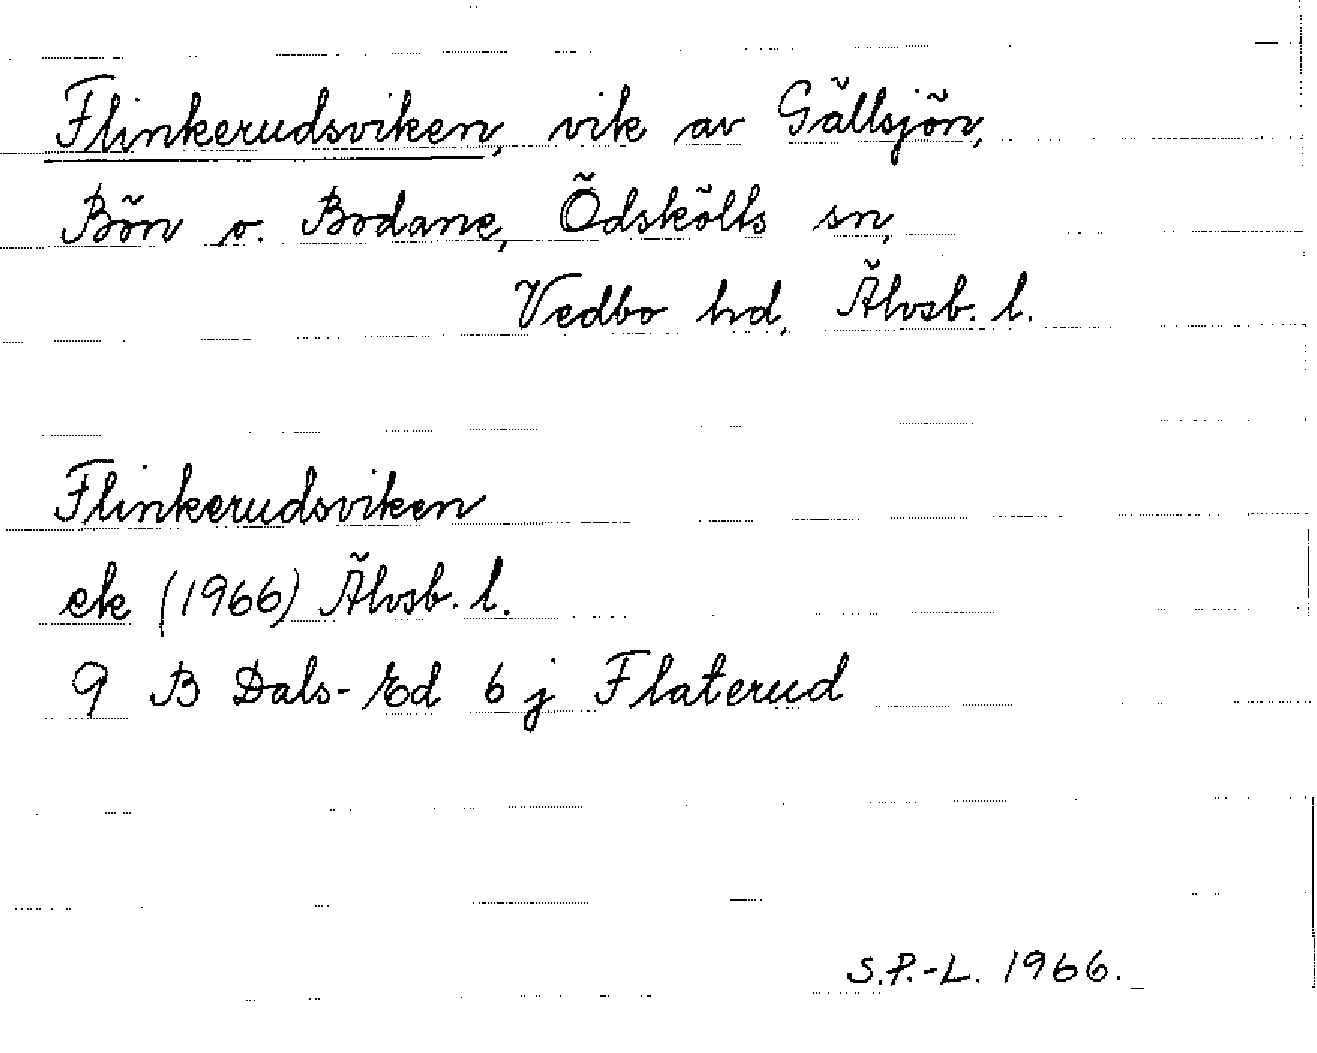 Flinkerudsviken, vik av Gällsjön,
Bön o. Bodane, Ödskölts sn,
Vedbo hd, Älvsb. l.
Flinkerudsviken
ek (1966) Älvsb. l.
9 B Dals-Ed 6 j Flaterud
S.P.-L. 1966.